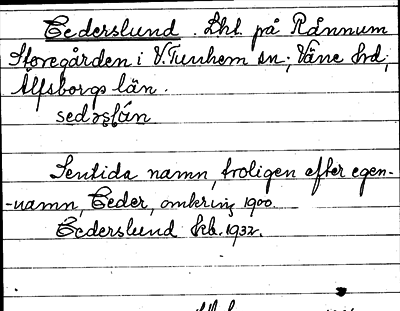 Cederslund. Lht. på Rånnum
Storegården i V. Tunhem sn; Väne hd;
Älfsborgs län.
Sentida namn, troligen efter egen-
-namn, Ceder, omkring 1900.
Cederslund kb. 1932.